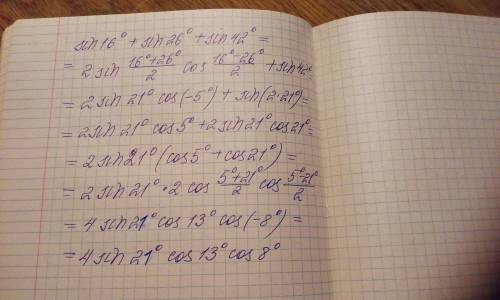 sin16° + sin26° + sin42° =
= 2 sin (16°+26°)/2 cos (16°-26°)/2 + sin42° =
= 2 sin 21° cos(-5°) + sin(2·21°) =
= 2 sin 21° cos5° + 2 sin 21° cos21° =
= 2 sin21° (cos5° + cos21°) =
= 2 sin 21° · 2 cos (5°+21°)/2 cos (5°-21°)/2
= 4 sin 21° cos 13° cos(-8°) =
= 4 sin 21° cos 13° cos 8°